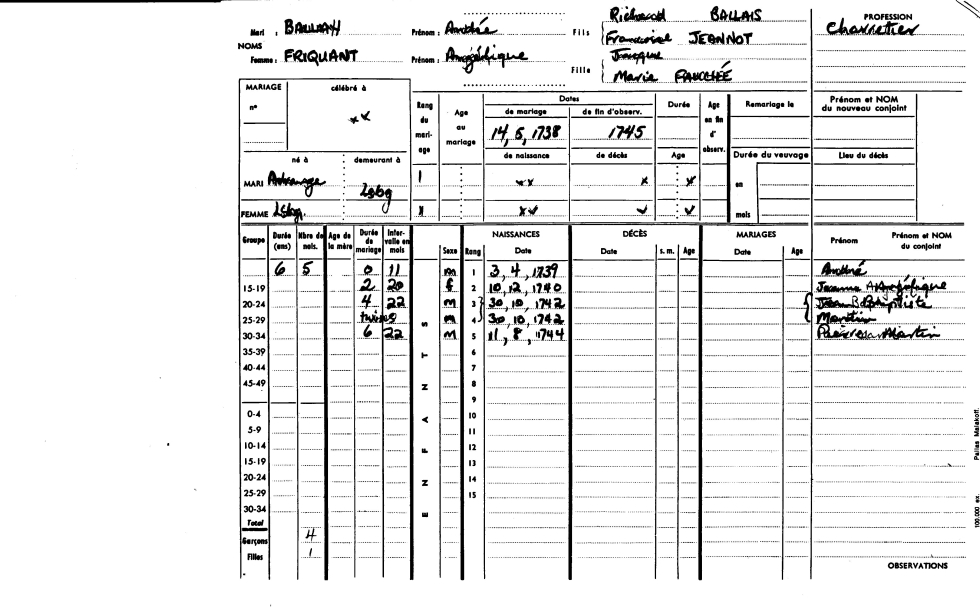 Richard BALLAIS PROFESSION
Mari : Prénom : André Fils Françoise JEANNOT Charretier
NOMS Jacques
Femme : FRIQUANT Prénom : Angélique Fille Marie
MARIAGE célébré à Rang du mariage Age au mariage Dates Durée Age en fin d'observ. Remariage le Prénom et NOM du nouveau conjoint
n° xx de mariage de fin d'observ.
14, 5, 1738 1745
né à demeurant à de naissance de décès Age Durée du veuvage Lieu du décès
MARI Lsbg 1 xx x x en
FEMME Lsbg. x xx x x mois
Groupe Durée (ans) Nbre de nais. Age de la mère Durée de mariage Intervalle en mois ENFANTS Sexe Rang NAISSANCES Date DÉCÈS Date s. m. Age MARIAGES Date Age Prénom Prénom et NOM du conjoint
6 5 0 11 m 1 3, 4, 1739 André
15-19 2 20 f 2 10, 12, 1740 Jeanne Angélique
20-24 4 22 m 3 30, 10, 1742 Jean Baptiste
25-29 twins m 4 30, 10, 1742 Martin
30-34 6 22 m 5 11, 8, 1744 Pierre Martin
35-39 6
40-44 7
45-49 8
9
0-4 10
5-9 11
10-14 12
15-19 13
20-24 14
25-29 15
30-34
Total
Garçons 4
Filles 1
OBSERVATIONS
100.000 ex. Pallas Malakoff.